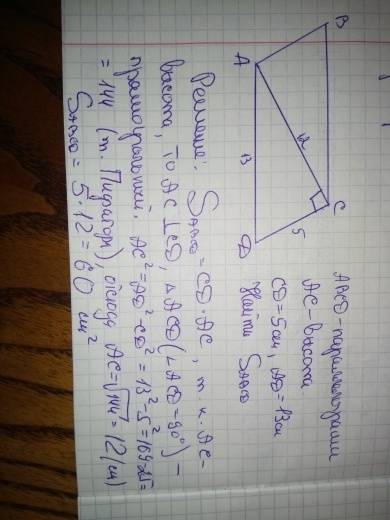 B
A
C
D
12
13
5
ABCD - параллелограмм
AC - высота
CD = 5 см, AD = 13 см
Найти S ABCD
Решение: S ABCD = CD · AC, т. к. AC -
высота, то AC ⊥ CD, △ ACD (∠ ACD = 90°) -
прямоугольный. AC² = AD² - CD² = 13² - 5² = 169 - 25 =
= 144 (т. Пифагора), отсюда AC = √144 = 12 (см)
S ABCD = 5 · 12 = 60 см²